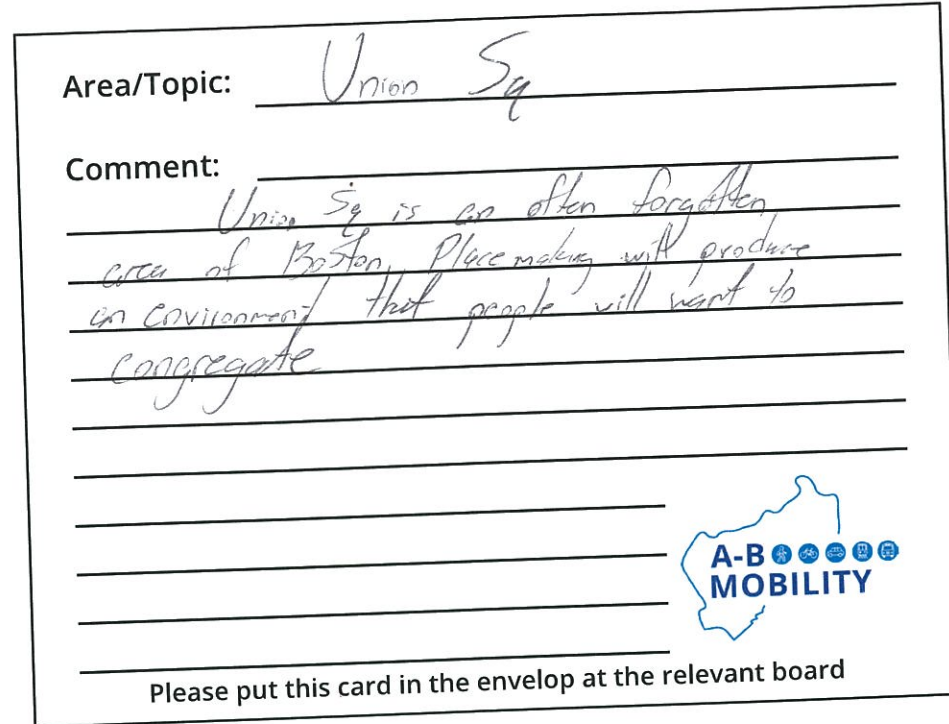 Area/Topic: Union Sq
Comment:
Union Sq is an often forgotten
area of Boston. Placemaking will produce
an environment that people will want to
congregate
A-B
MOBILITY
Please put this card in the envelop at the relevant board